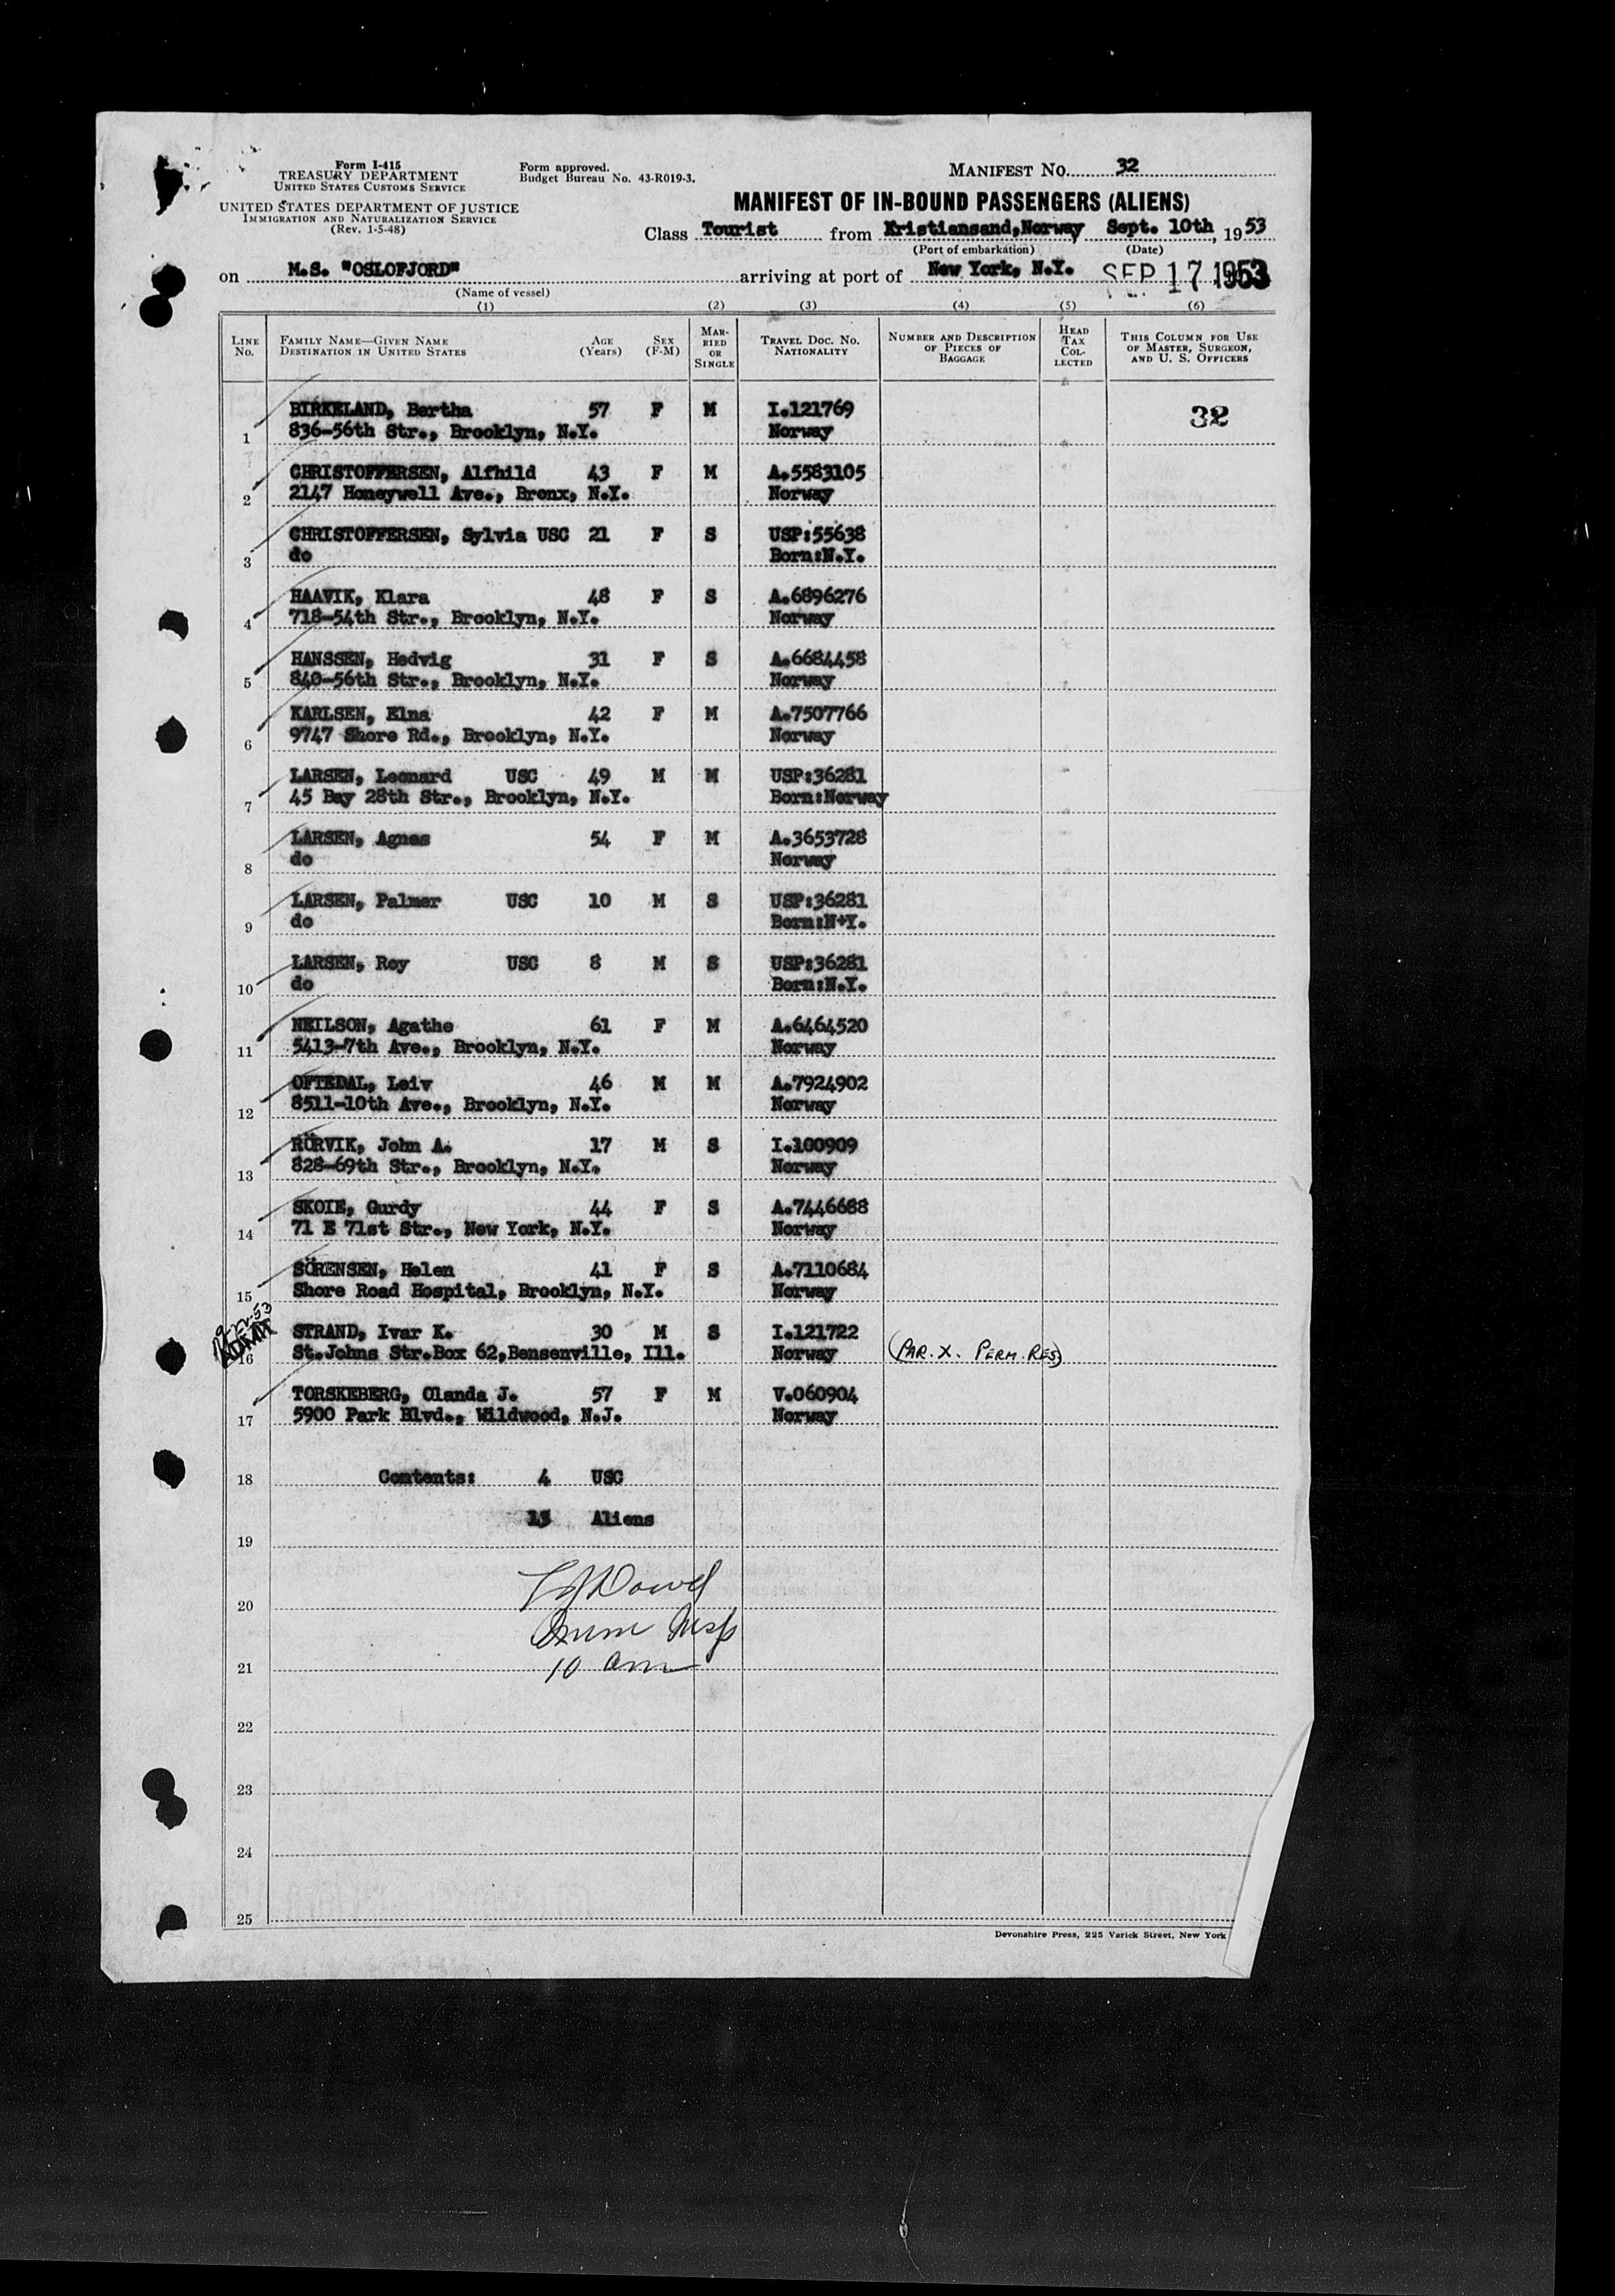 Form I-415
TREASURY DEPARTMENT
UNITED STATES CUSTOMS SERVICE
UNITED STATES DEPARTMENT OF JUSTICE
IMMIGRATION AND NATURALIZATION SERVICE
(Rev. 1-5-48)
Form approved.
Budget Bureau No. 43-R019-3.
MANIFEST NO. 32
MANIFEST OF IN-BOUND PASSENGERS (ALIENS)
Class Tourist from Kristiansand,Norway Sept. 10th, 1953
(Port of embarkation) (Date)
on M.S. "OSLOFJORD" arriving at port of New York, N.Y. SEP 17 1953
(Name of vessel)
(1) (2) (3) (4) (5) (6)
LINE No. FAMILY NAME—GIVEN NAME DESTINATION IN UNITED STATES AGE (Years) SEX (F-M) MARRIED OR SINGLE TRAVEL DOC. NO. NATIONALITY NUMBER AND DESCRIPTION OF PIECES OF BAGGAGE HEAD TAX COLLECTED THIS COLUMN FOR USE OF MASTER, SURGEON, AND U. S. OFFICERS
BIRKELAND, Bertha 57 F M I.121769 32
1 836-56th Str., Brooklyn, N.Y. Norway
CHRISTOFFERSEN, Alfhild 43 F M A.5583105
2 2147 Honeywell Ave., Bronx, N.Y. Norway
CHRISTOFFERSEN, Sylvia USC 21 F S USP:55638
3 do Born:N.Y.
HAAVIK, Klara 48 F S A.6896276
4 718-54th Str., Brooklyn, N.Y. Norway
HANSSEN, Hedvig 31 F S A.6684458
5 840-56th Str., Brooklyn, N.Y. Norway
KARLSEN, Elna 42 F M A.7507766
6 9747 Shore Rd., Brooklyn, N.Y. Norway
LARSEN, Leonard USC 49 M M USP:36281
7 45 Bay 28th Str., Brooklyn, N.Y. Born:Norway
LARSEN, Agnes 54 F M A.3653728
8 do Norway
LARSEN, Palmer USC 10 M S USP:36281
9 do Born:N+Y.
LARSEN, Roy USC 8 M S USP:36281
10 do Born:N.Y.
NEILSON, Agathe 61 F M A.6464520
11 5413-7th Ave., Brooklyn, N.Y. Norway
OFTEDAL, Leiv 46 M M A.7924902
12 8511-10th Ave., Brooklyn, N.Y. Norway
RÖRVIK, John A. 17 M S I.100909
13 828-69th Str., Brooklyn, N.Y. Norway
SKOIE, Gurdy 44 F S A.7446688
14 71 E 71st Str., New York, N.Y. Norway
SÖRENSEN, Helen 41 F S A.7110684
15 Shore Road Hospital, Brooklyn, N.Y. Norway
ADMIT STRAND, Ivar K. 30 M S I.121722
16 St.Johns Str.Box 62,Bensenville, Ill. Norway (PAR. X. PERM. RES)
TORSKEBERG, Olanda J. 57 F M V.060904
17 5900 Park Blvd., Wildwood, N.J. Norway
18 Contents: 4 USC
13 Aliens
19
20
Imm Insp
21 10 am
22
23
24
25
Devonshire Press, 225 Varick Street, New York